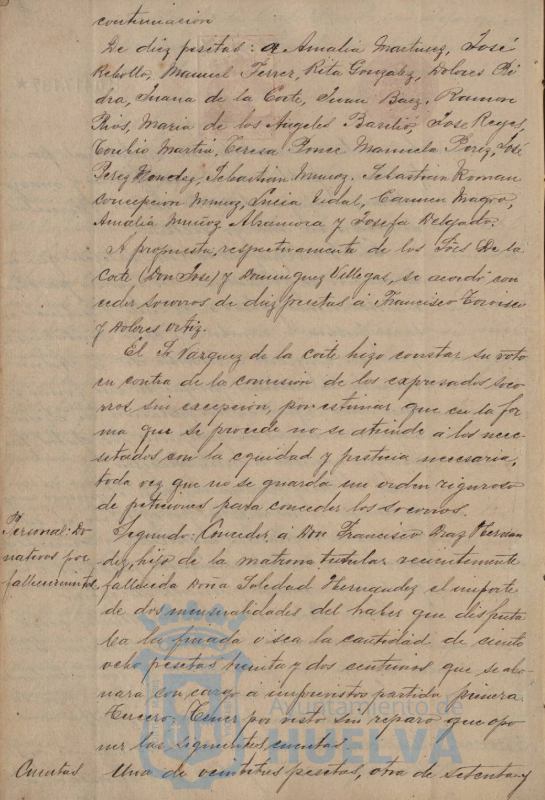 continuación
De diez pesetas: a Amalia Martinez, José
Rebollo, Manuel Ferrer, Rita Gonzalez, Dolores Rie
dra, Juana de la Corte, Juan Baez, Ramon
Rios, Maria de los Angeles Basilio, Jose Reyes,
Emilio Martin, Teresa Ponce Manuela Perez, José
Perez Mendez, Sebastián Munoz, Sebastian Roman
Concepcion Munoz, Lucia Vidal, Carmen Magro,
Amalia Muñoz Alzamora y Josefa Delgado.
A propuesta, respectivamente de los Sres De la
Corte (Don Jose) y Dominguez Villegas, se acordó con
ceder socorros de diez pesetas á Francisco
y Dolores Ortiz.
El Sr Vazquez de la Corte hizo constar su voto
en contra de la concesión de los expresados soco
rros sin excepción, por estimar que en la for
ma que se procede no se atiende a los nece-
sitados con la equidad y justicia necesaria,
toda vez que no se guarda un orden riguroso
de peticiones para conceder los socorros.
Personal: Do
nativos por
fallecimiento
Segundo: Conceder á Don Francisco Diaz Hernan
dez, hijo de la matrona titular recientemente
fallecida Doña Soledad Hernandez el importe
de dos mensualidades del haber que disfruta
ba la finada o sea la cantidad de ciento
ocho pesetas treinta y dos centimos que se abo
nara con cargo a imprevistos partida primera.
Tercero: Tener por visto sin reparo que opo
ner las siguientes cuentas.
Cuentas
Una de veintitres pesetas, otra de setenta y
Ayuntamiento de
HUELVA